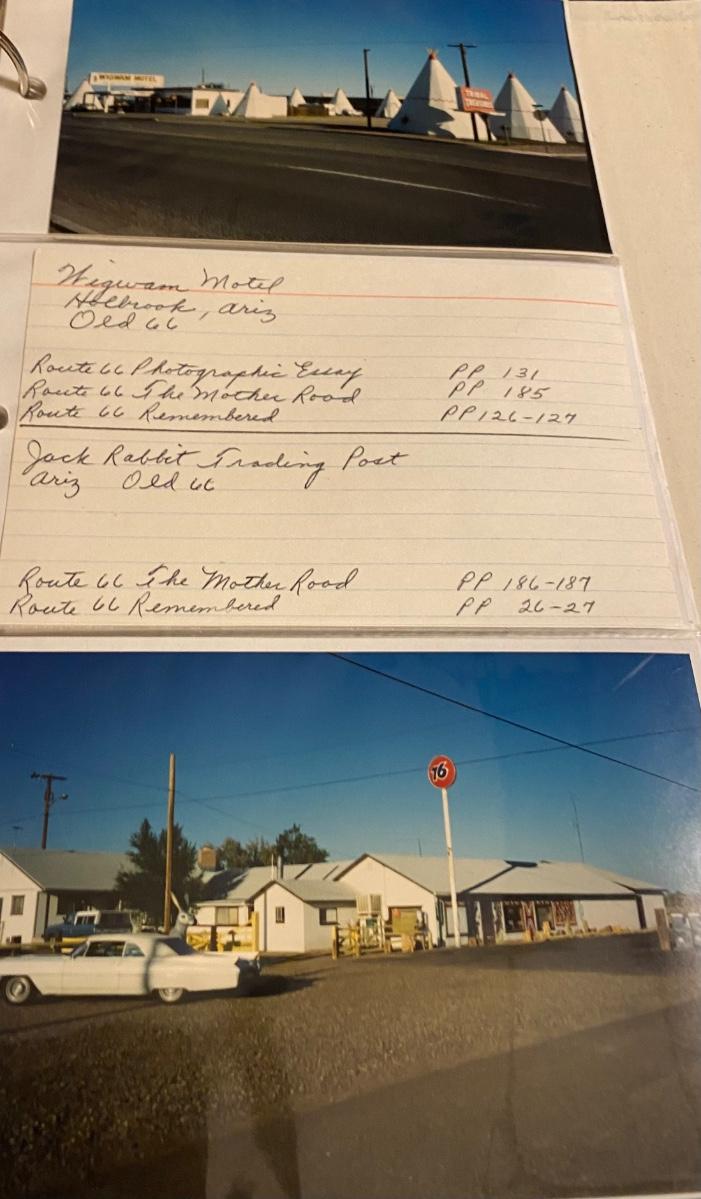 WIGWAM MOTEL
TRIBAL
TREASURES
Wigwam Motel
Holbrook, Ariz
Old 66
Route 66 Photographic Essay PP 131
Route 66 The Mother Road PP 185
Route 66 Remembered PP 126-127
Jack Rabbit Trading Post
Ariz Old 66
Route 66 The Mother Road PP 186-187
Route 66 Remembered PP 26-27
76